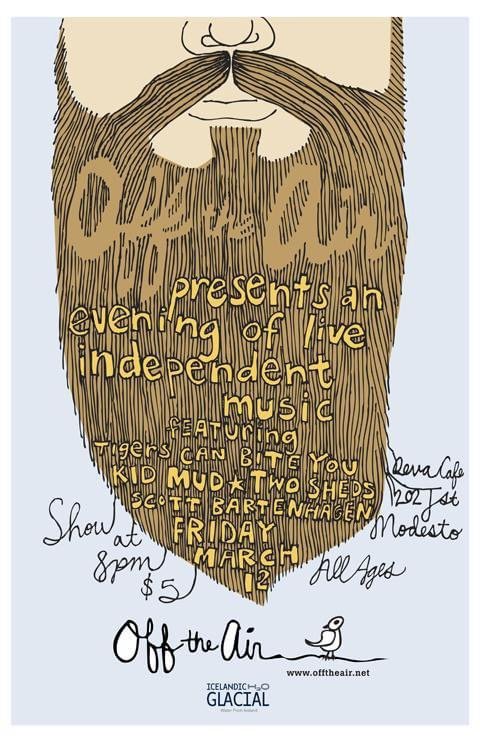 Off the Air
presents an
evening of live
independent
music
FEATURING
TIGERS CAN BITE YOU
KID MUD★TWO SHEDS
SCOTT BARTENHAGEN
FRIDAY
MARCH
12
Show at
8pm
$5
Deva Cafe
1202 J st
Modesto
All Ages
Off the Air
www.offtheair.net
ICELANDIC H2O
GLACIAL
Water From Iceland